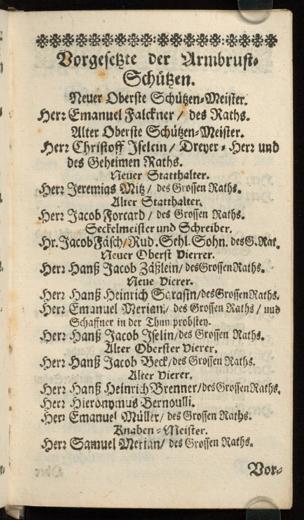 Vorgesetzte der Armbrust-
Schützen.
Neuer Oberste Schützen-Meister.
Herr Emanuel Falckner / des Raths.
Alter Oberste Schützen-Meister.
Herr Christoff Iselein / Dreyer-Herr und
des Geheimen Raths.
Neuer Statthalter.
Herr Jeremias Mitz / des Grossen Raths.
Alter Statthalter.
Herr Jacob Forcard / des Grossen Raths.
Seckelmeister und Schreiber.
Hr. Jacob Fäsch / Rud. Sehl. Sohn, des G. Rat.
Neuer Oberst Vierer.
Herr Hanß Jacob Zäßlein / des Grossen Raths.
Neue Vierer.
Herr Hanß Heinrich Sarasin / des Grossen Raths.
Herr Emanuel Merian / des Grossen Raths / und
Schaffner in der Thumprobstey.
Herr Hanß Jacob Iselin / des Grossen Raths.
Alter Oberster Vierer.
Herr Hanß Jacob Beck / des Grossen Raths.
Alter Vierer.
Herr Hanß Heinrich Brenner / des Grossen Raths.
Herr Hieronymus Bernoulli.
Herr Emanuel Müller / des Grossen Raths.
Knaben-Meister.
Herr Samuel Merian / des Grossen Raths.
Vor-